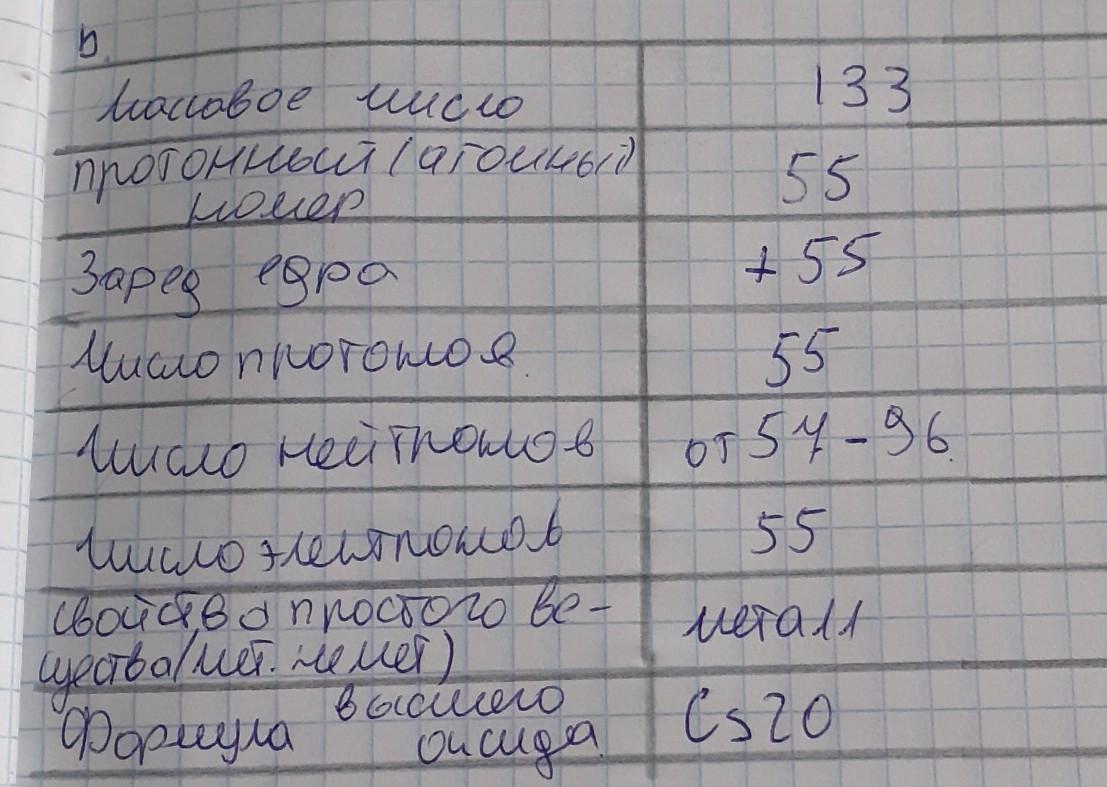 b.
Массовое число 133
протонный (атомный)
номер 55
Заред едра +55
Число протонов. 55
Число нейтронов от 57-96.
Число электронов 55
свойства простого ве-
щества (мет. немет) металл
Формула высшего
оксида. Cs2O